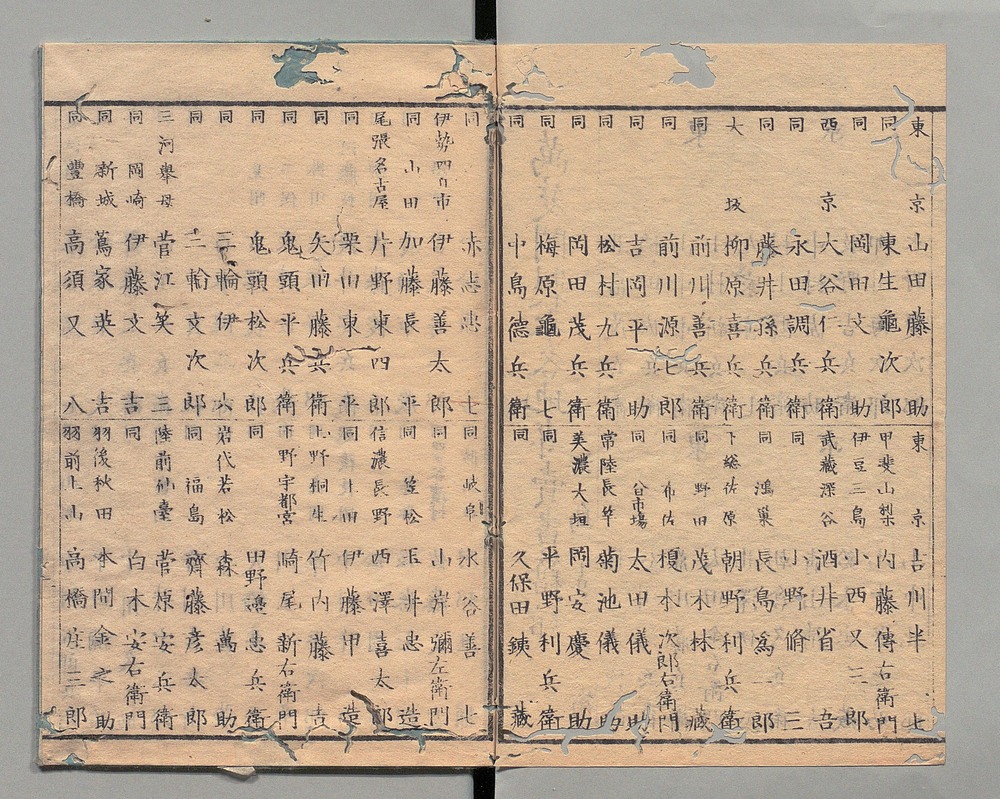 東京 山田藤助
同 東生龜次郎
同 岡田文助
西京 大谷仁兵衛
同 永田調兵衛
同 藤井孫兵衛
大坂 柳原喜兵衛
同 前川善兵衛
同 前川源七郎
同 吉岡平助
同 松村九兵衛
同 岡田茂兵衛
同 梅原龜七
同 中島德兵衛
東京 吉川半七
甲斐山梨 内藤傳右衛門
伊豆三島 小西又三郎
武藏深谷 酒井省吾
同 小野脩三
同 鴻巣 長島爲一郎
下総佐原 朝野利兵衛
同 野田 茂木林藏
同 布佐 榎本次郎右衛門
同 台市場 太田儀助
常陸長竿 菊池儀助
美濃大垣 岡安慶助
同 平野利兵衛
同 久保田銕藏
同 赤志忠七
伊勢四日市 伊藤善太郎
同 山田 加藤長平
尾張名古屋 片野東四郎
同 栗田東平
同 矢田藤兵衛
同 鬼頭平兵衛
同 鬼頭松次郎
同 三輪伊六
同 三輪文次郎
三河擧母 菅江笑三
同 岡崎 伊藤文吉
同 新城 蔦家英吉
同 豐橋 高須又八
同 岐阜 水谷善七
同 山岸彌左衛門
同 笠松 玉井忠造
信濃長野 西澤喜太郎
同 上田 伊藤甲
上野桐生 竹内藤吉
下野宇都宮 崎尾新右衛門
同 田野忠兵衛
岩代若松 森萬助
同 福島 齊藤彦太郎
陸前仙臺 菅原安兵衛
同 白木安右衛門
羽後秋田 本間金之助
羽前上山 高橋庄三郎